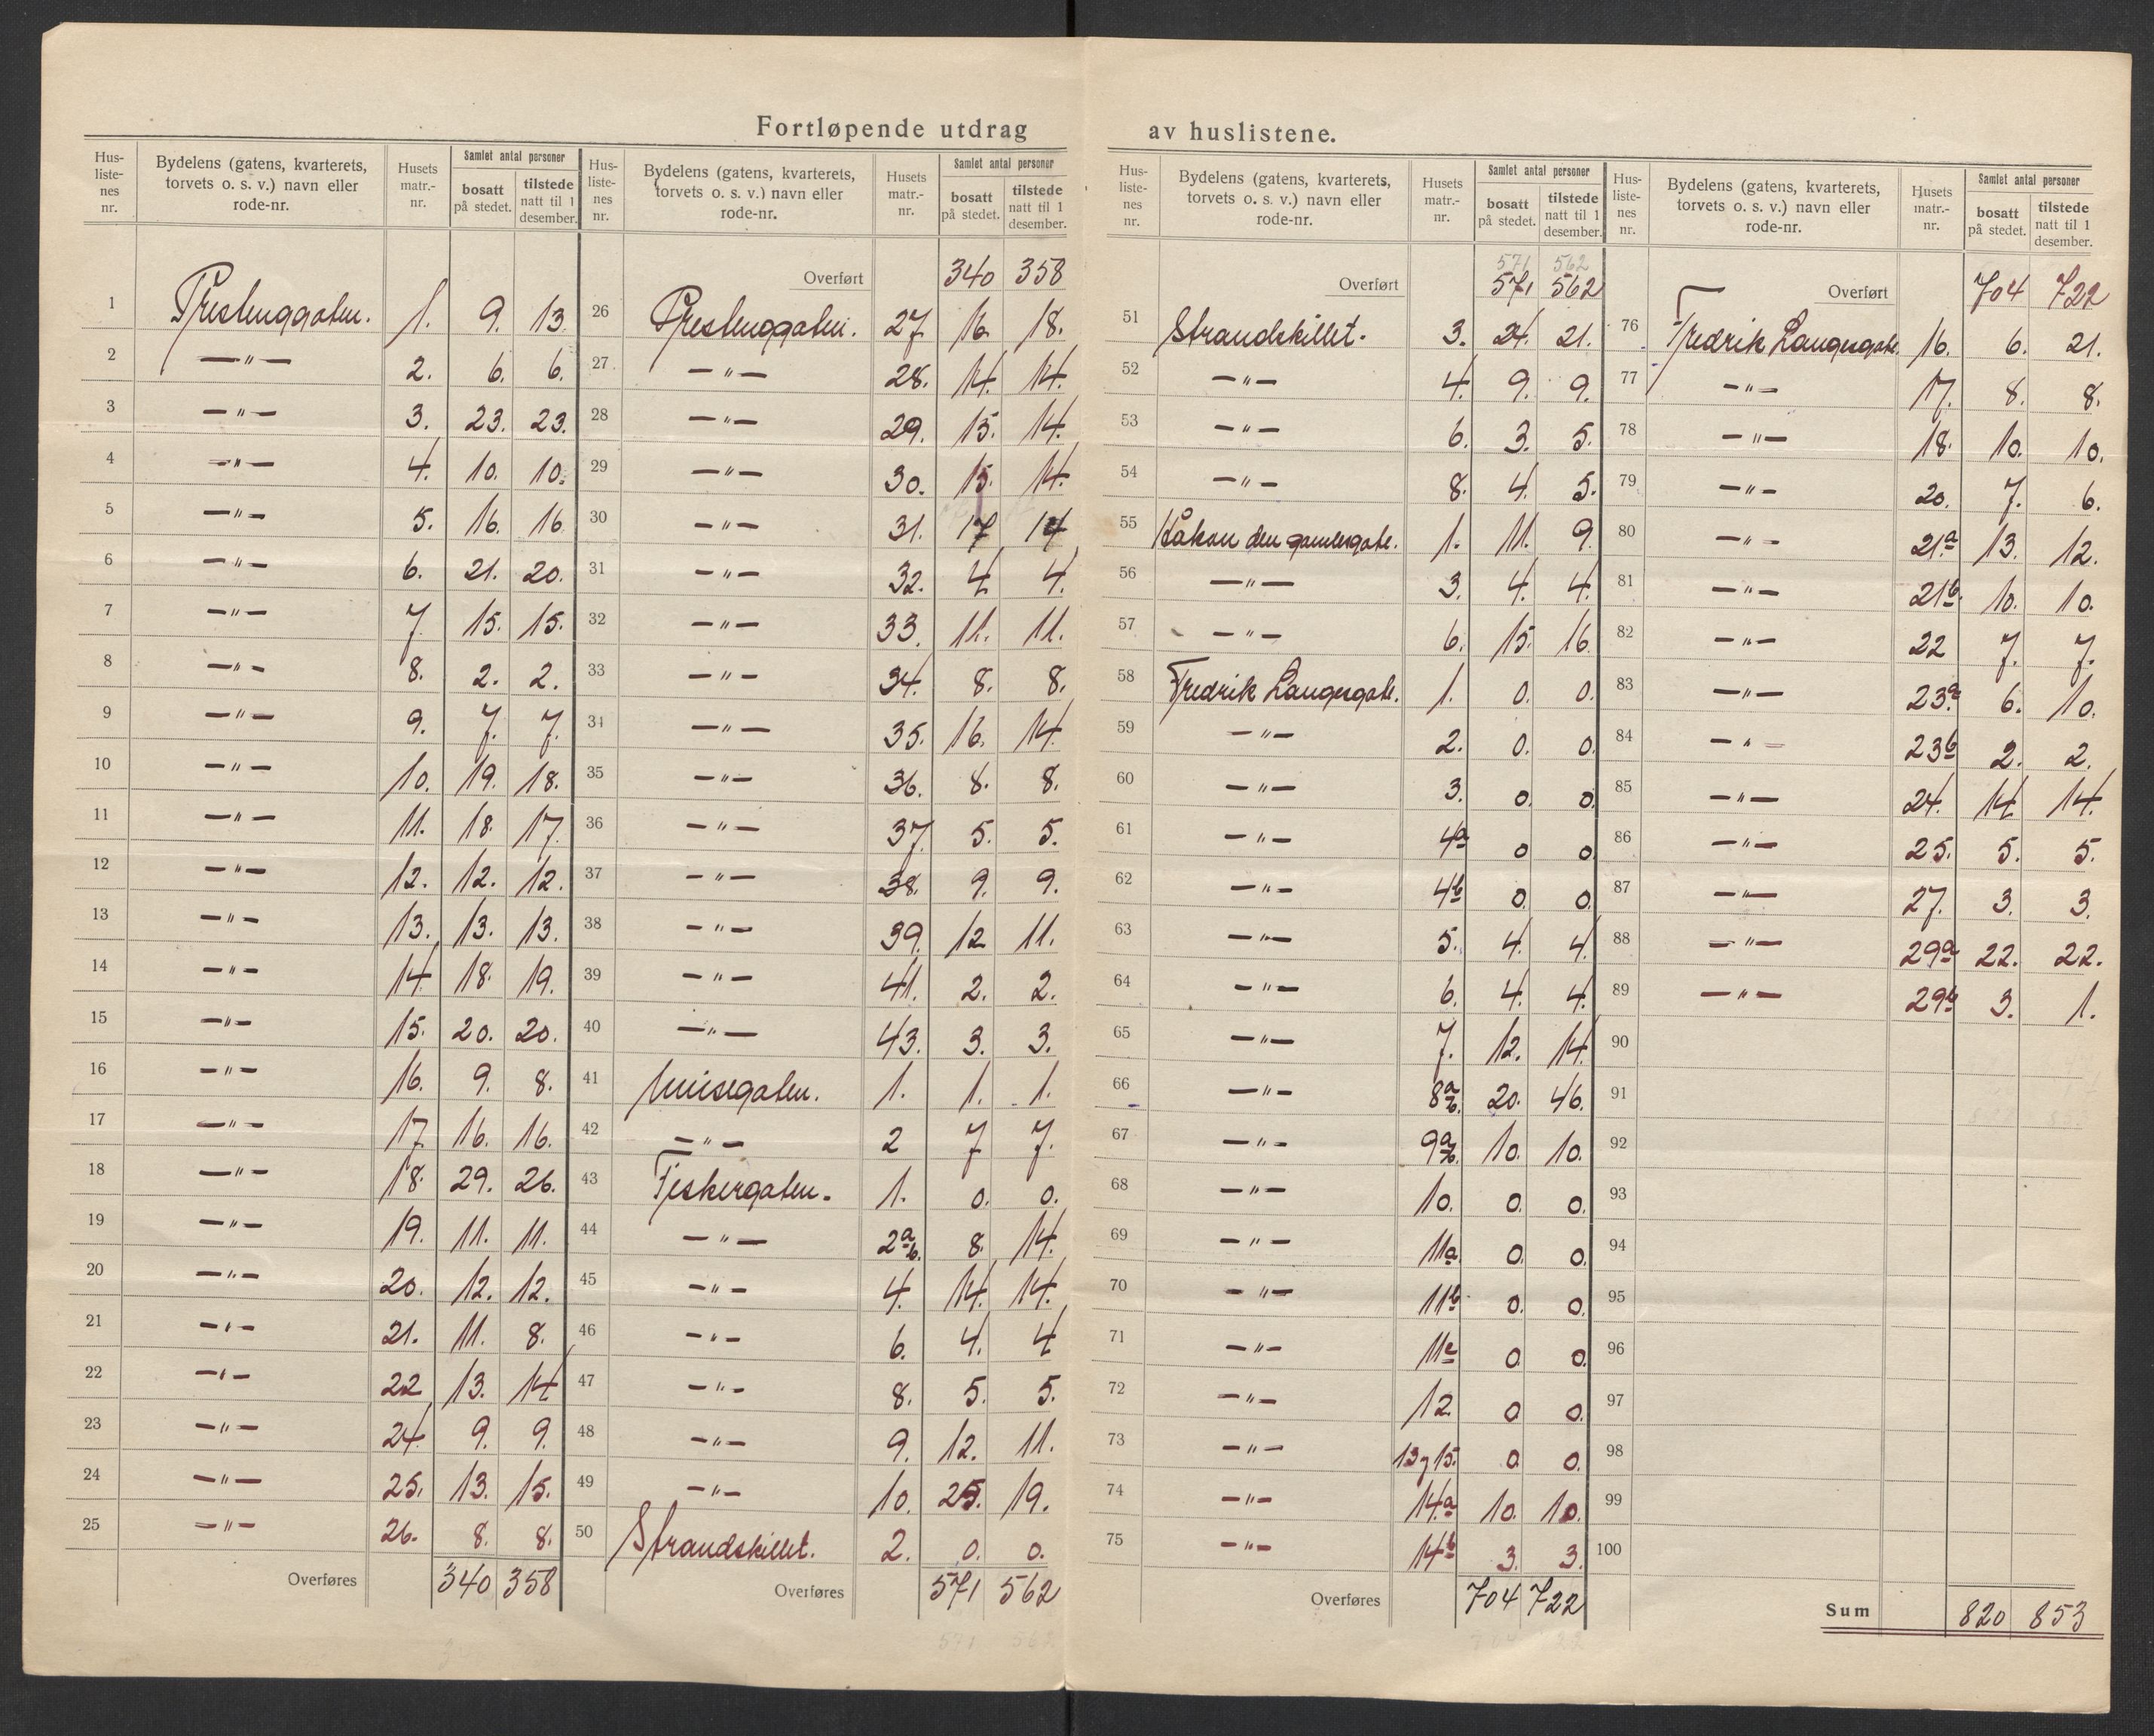 Fortløpende utdrag av huslistene.
Hus-listenes nr. | Bydelens (gatens, kvarterets, torvets o. s. v.) navn eller rode-nr. | Husets matr.-nr. | Samlet antal personer bosatt på stedet. | tilstede natt til 1 desember.
1 Prestenggaten. 1. 9. 13.
2 —"— 2. 6. 6.
3 —"— 3. 23. 23.
4 —"— 4. 10. 10.
5 —"— 5. 16. 16
6 —"— 6. 21. 20.
7 —"— 7 15. 15.
8 —"— 8. 2. 2.
9 —"— 9. 7. 7.
10 —"— 10. 19. 18.
11 —"— 11. 18. 17.
12 —"— 12. 12. 12.
13 —"— 13. 13. 13.
14 —"— 14 18. 19.
15 —"— 15. 20. 20.
16 —"— 16. 9. 8.
17 —"— 17 16. 16.
18 —"— 18. 29. 26.
19 —"— 19. 11. 11.
20 —"— 20. 12. 12.
21 —"— 21. 11. 8.
22 —"— 22 13. 14
23 —"— 24 9. 9.
24 —"— 25. 13. 15.
25 —"— 26. 8. 8.
Overføres 340 358
Hus-listenes nr. | Bydelens (gatens, kvarterets, torvets o. s. v.) navn eller rode-nr. | Husets matr.-nr. | Samlet antal personer bosatt på stedet. | tilstede natt til 1 desember.
Overført 340 358
26 Prestenggaten. 27 16. 18.
27 —"— 28. 14. 14.
28 —"— 29. 15. 14.
29 —"— 30. 15. 14.
30 —"— 31. 17 14
31 —"— 32. 4 4.
32 —"— 33. 11. 11.
33 —"— 34. 8. 8.
34 —"— 35. 16. 14
35 —"— 36. 8. 8.
36 —"— 37 5. 5.
37 —"— 38. 9. 9.
38 —"— 39. 12 11.
39 —"— 41. 2. 2.
40 —"— 43. 3. 3.
41 1. 1. 1.
42 —"— 2 7 7.
43 Fiskergaten. 1. 0. 0.
44 —"— 2a/b. 8. 14.
45 —"— 4. 14. 14.
46 —"— 6. 4. 4
47 —"— 8. 5. 5.
48 —"— 9. 12. 11.
49 —"— 10. 25. 19.
50 Strandskillet. 2. 0. 0.
Overføres 571 562
Hus-listenes nr. | Bydelens (gatens, kvarterets, torvets o. s. v.) navn eller rode-nr. | Husets matr.-nr. | Samlet antal personer bosatt på stedet. | tilstede natt til 1 desember.
571 562
Overført 571 562
51 Strandskillet. 3. 24. 21.
52 —"— 4. 9. 9.
53 —"— 6. 3. 5.
54 —"— 8. 4. 5.
55 Håkon den gamlesgate. 1. 11. 9.
56 —"— 3. 4. 4.
57 —"— 6. 15. 16
58 Fredrik Langesgate. 1. 0. 0.
59 —"— 2. 0. 0.
60 —"— 3. 0. 0.
61 —"— 4a 0 0.
62 —"— 4b 0. 0.
63 —"— 5. 4. 4.
64 —"— 6. 4. 4.
65 —"— 7. 12. 14.
66 —"— 8a/b. 20. 46.
67 —"— 9a/b. 10. 10.
68 —"— 10. 0. 0.
69 —"— 11a. 0. 0.
70 —"— 11b 0. 0.
71 —"— 11c 0. 0.
72 —"— 12. 0 0.
73 —"— 13 g 15. 0. 0.
74 —"— 14a 10. 10.
75 —"— 14b 3. 3.
Overføres 704 722
Hus-listenes nr. | Bydelens (gatens, kvarterets, torvets o. s. v.) navn eller rode-nr. | Husets matr.-nr. | Samlet antal personer bosatt på stedet. | tilstede natt til 1 desember.
Overført 704 722
76 Fredrik Langesgate. 16. 6. 21.
77 —"— 17. 8. 8.
78 —"— 18. 10. 10.
79 —"— 20. 7. 6.
80 —"— 21a 13. 12.
81 —"— 21b. 10. 10.
82 —"— 22 7. 7.
83 —"— 23a 6. 10.
84 —"— 23b 2. 2.
85 —"— 24. 14 14.
86 —"— 25. 5. 5.
87 —"— 27. 3. 3.
88 —"— 29a 22. 22.
89 —"— 29b 3. 1.
90
91
92
93
94
95
96
97
98
99
100
Sum 820 853